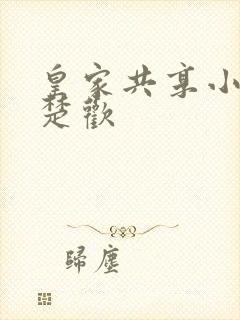 皇家共享小
楚歡
歸塵